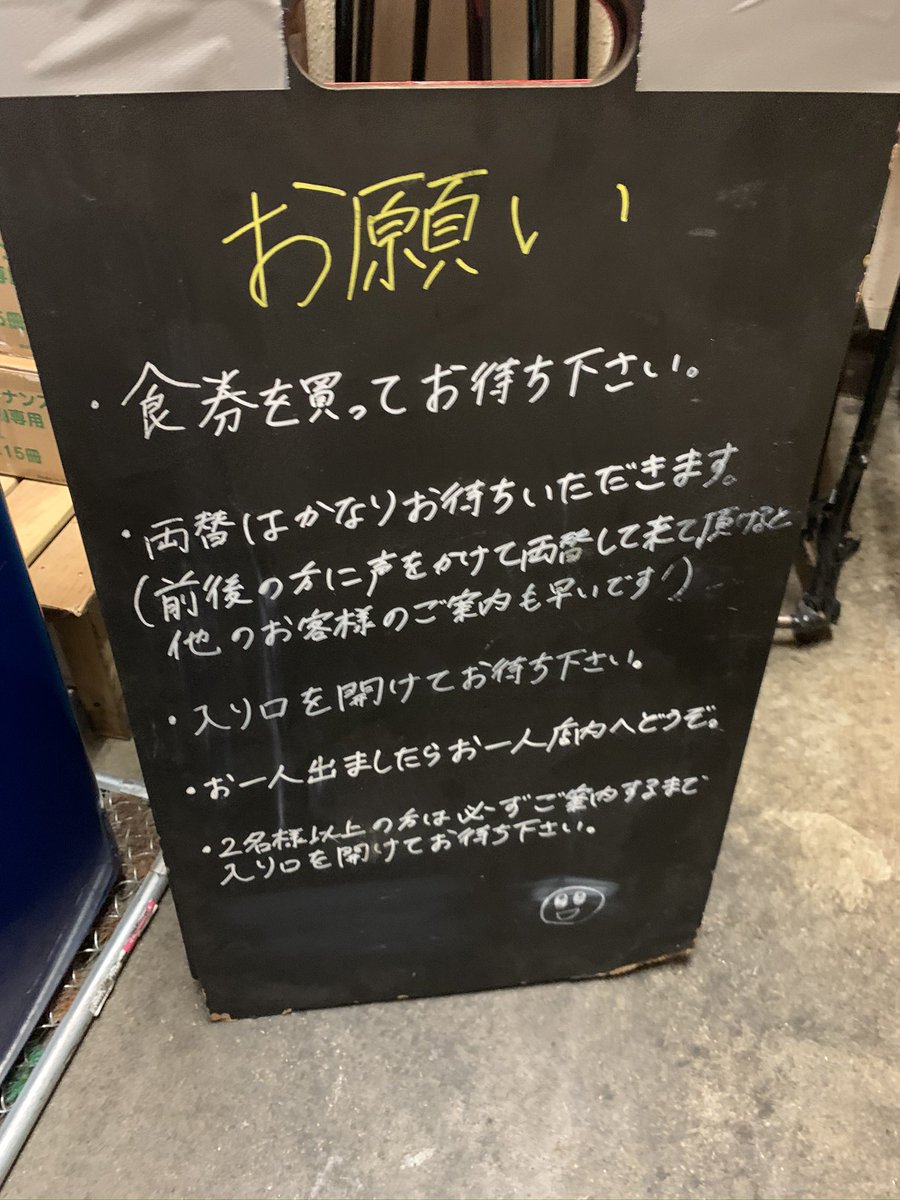 お願い
・食券を買ってお待ち下さい。
・両替はかなりお待ちいただきます。
(前後の方に声をかけて両替して来て頂けると
他のお客様のご案内も早いです!)
・入り口を開けてお待ち下さい。
・お一人出ましたらお一人店内へどうぞ。
・2名様以上の方は必ずご案内するまで
入り口を開けてお待ち下さい。
専用
15冊